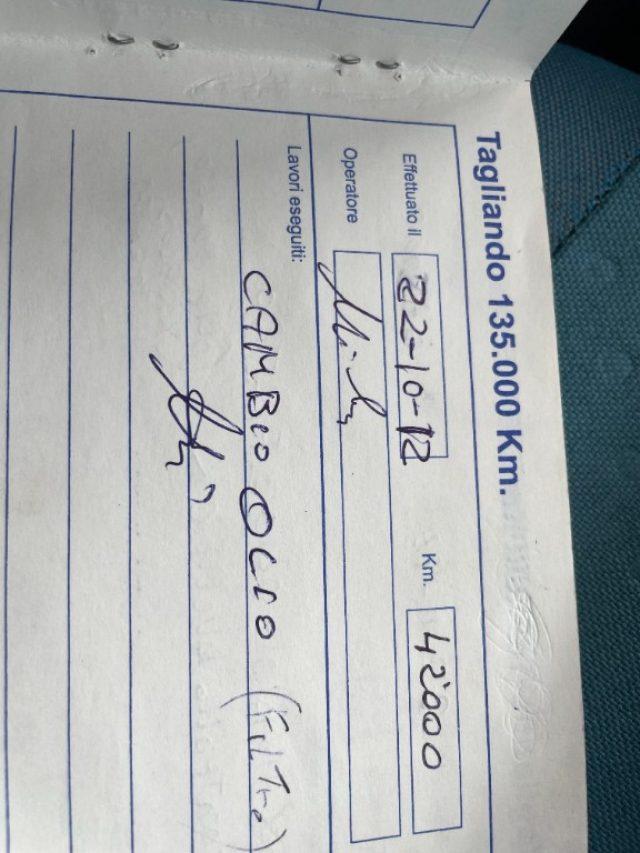 Tagliando 135.000 Km.
Effettuato il 22-10-12 Km. 42000
Operatore
Lavori eseguiti:
CAMBIO OLIO (FilTro)